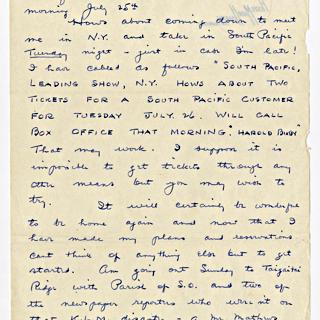 morning July 25th
Hows about coming down to meet
me in N.Y. and take in South Pacific
Tuesday night - just in case I'm late!
I have cabled as follows "SOUTH PACIFIC,
LEADING SHOW, N.Y. HOWS ABOUT TWO
TICKETS FOR A SOUTH PACIFIC CUSTOMER
FOR TUESDAY JULY 26. WILL CALL
BOX OFFICE THAT MORNING. HAROLD
That may work. I suppose it is
impossible to get tickets through any
other means but you may wish to
try.
It will certainly be wonderful
to be home again and now that I
have made my plans and reservations
cant think of anything else but to get
started. Am going out Sunday to
Ridge with Parish of S.O. and two of
the newspaper reporters who were not on
that